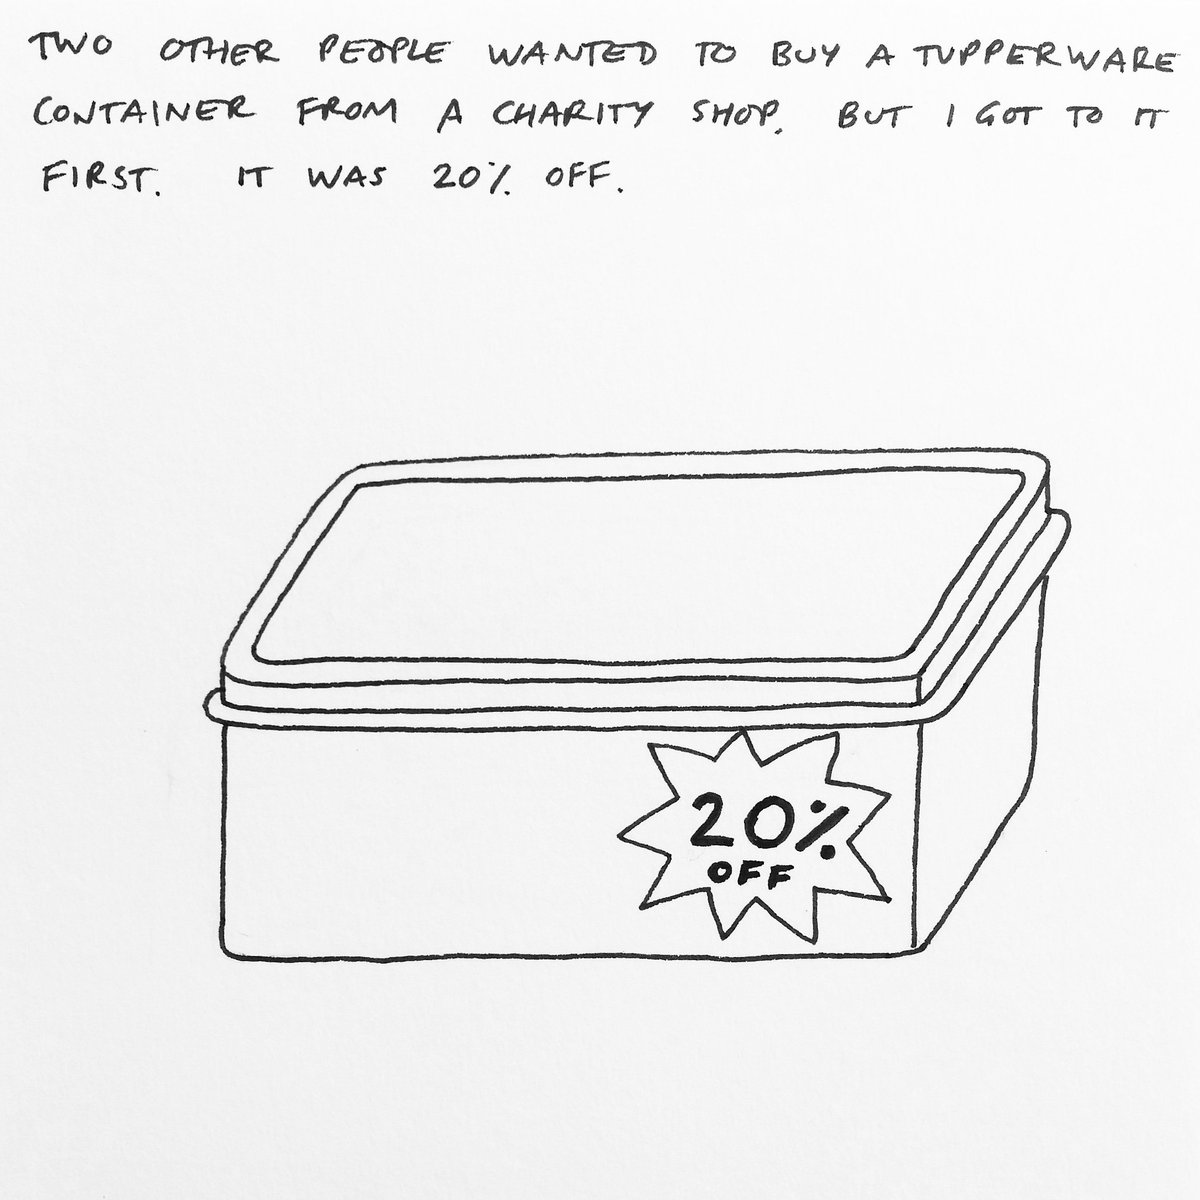 TWO OTHER PEOPLE WANTED TO BUY A TUPPERWARE
CONTAINER FROM A CHARITY SHOP. BUT I GOT TO IT
FIRST. IT WAS 20% OFF.
20%
OFF